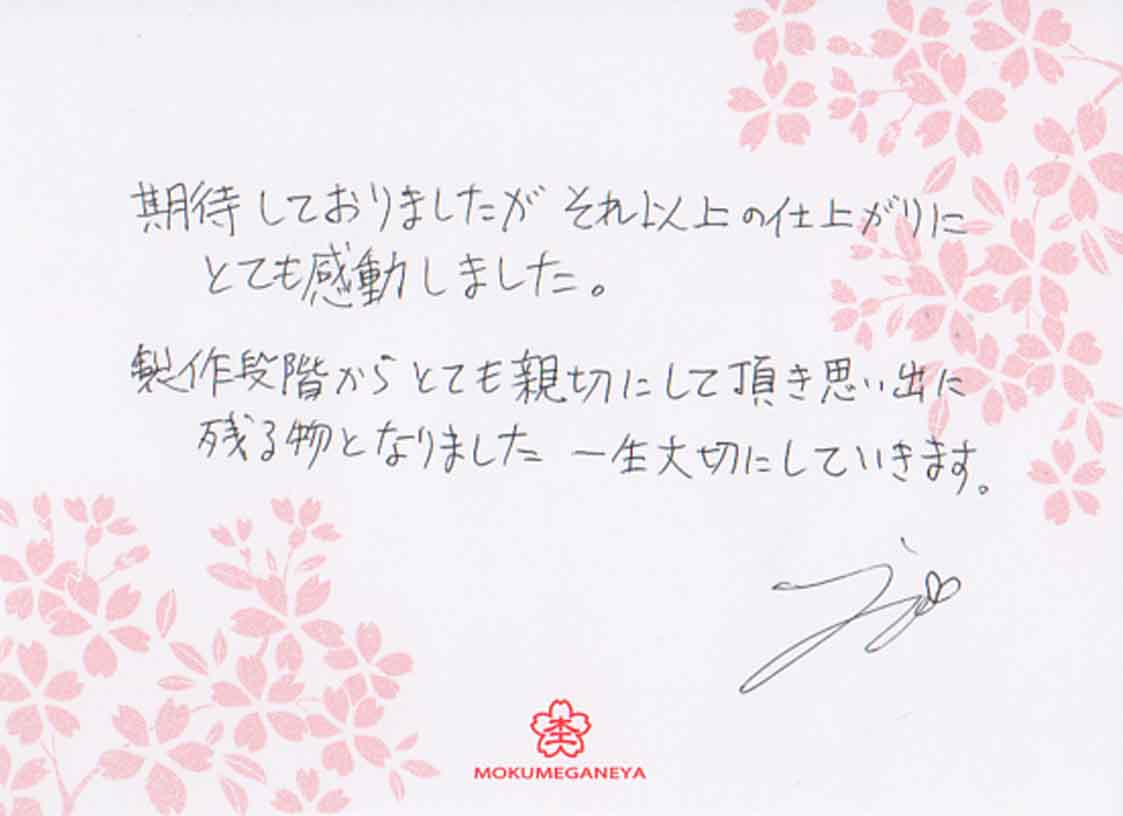 期待しておりましたが それ以上の仕上がりに
とても感動しました。
製作段階からとても親切にして頂き思い出に
残る物となりました 一生大切にしていきます。
MOKUMEGANEYA